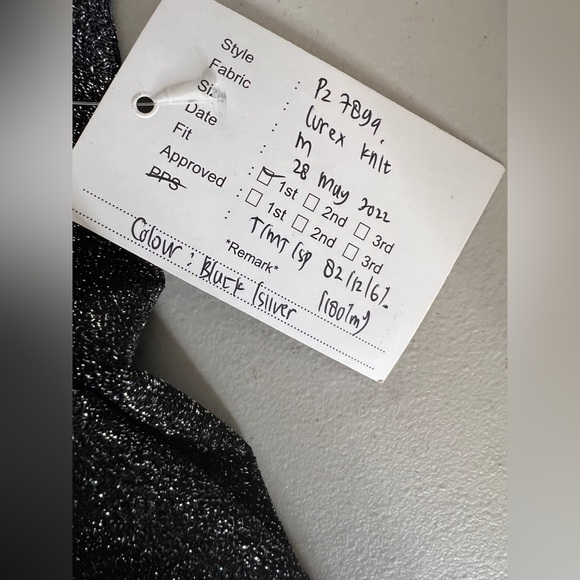 Style : PZ 7899.
Fabric : lurex knit
Size : m
Date : 28 may 2022
Fit : 1st 2nd 3rd
Approved : 1st 2nd 3rd
PPS T/MT/SP 82/12/6%
*Remark*
Colour : Black/silver